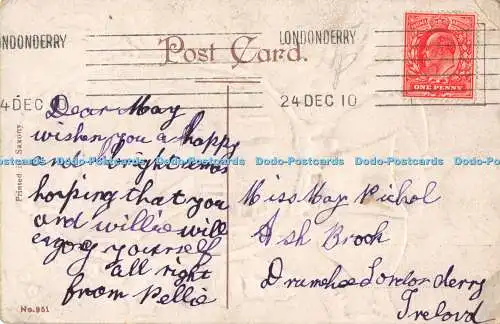 ONDONDERRY
LONDONDERRY
Post Card.
ONE PENNY
4 DEC 10
24 DEC 10
Dear May
wishen you a happy
and bright xmas
hoping that you
and willie will
enjoy yourself
all right
from Nellie
Miss May Nichol
Ash Brook
Drumhoe Londonderry
Irelavd
Printed in Saxony.
No. 951
Dodo-Postcards Dodo-Postcards Dodo-Postcards Dodo-Postcards Dodo-Postcards